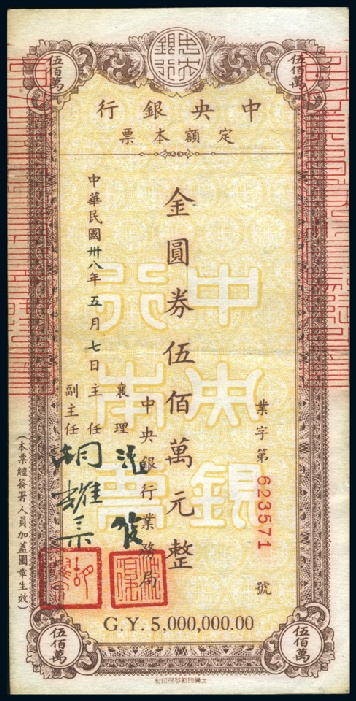 中央銀行
伍佰萬
伍佰萬
中央銀行
定額本票
業字第623571號
金圓券伍佰萬元整
中央銀行業務局
襄理
主任
副主任
中華民國卅八年五月七日
(本票經簽署人員加蓋圖章生效)
中央銀行本票
G.Y. 5,000,000.00
伍佰萬
伍佰萬